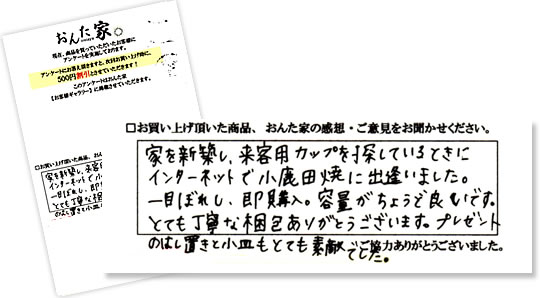 おんた家
現在、商品を買っていただいたお客様に
アンケートを実施しております。
アンケートにお答え頂きますと、次回お買い上げ時に、
500円割引とさせていただきます!
このアンケートはおんた家
【お客様ギャラリー】に掲載させていただきます。
□お買い上げ頂いた商品、おんた
家を新築し、来客
インターネットで小
一目ぼれし、即
とても丁寧な梱
のはし置きと小皿
□お買い上げ頂いた商品、おんた家の感想・ご意見をお聞かせください。
家を新築し、来客用カップを探しているときに
インターネットで小鹿田焼に出逢いました。
一目ぼれし、即購入。容量がちょうど良いです。
とても丁寧な梱包ありがとうございます。プレゼント
のはし置きと小皿もとても素敵でした。
ご協力ありがとうございました。